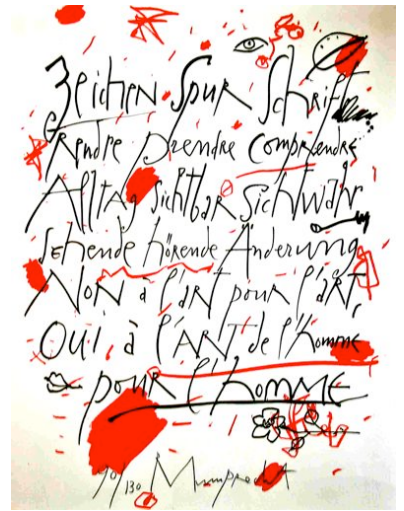 Zeichen Spur Schrift
Rendre prendre comprendre
Alltag sichtbar sichtwahr
sehende hörende Änderung
NON à l'art pour l'art,
Oui, à l'ART de l'homme
pour l'homme
10/130 Mumprecht